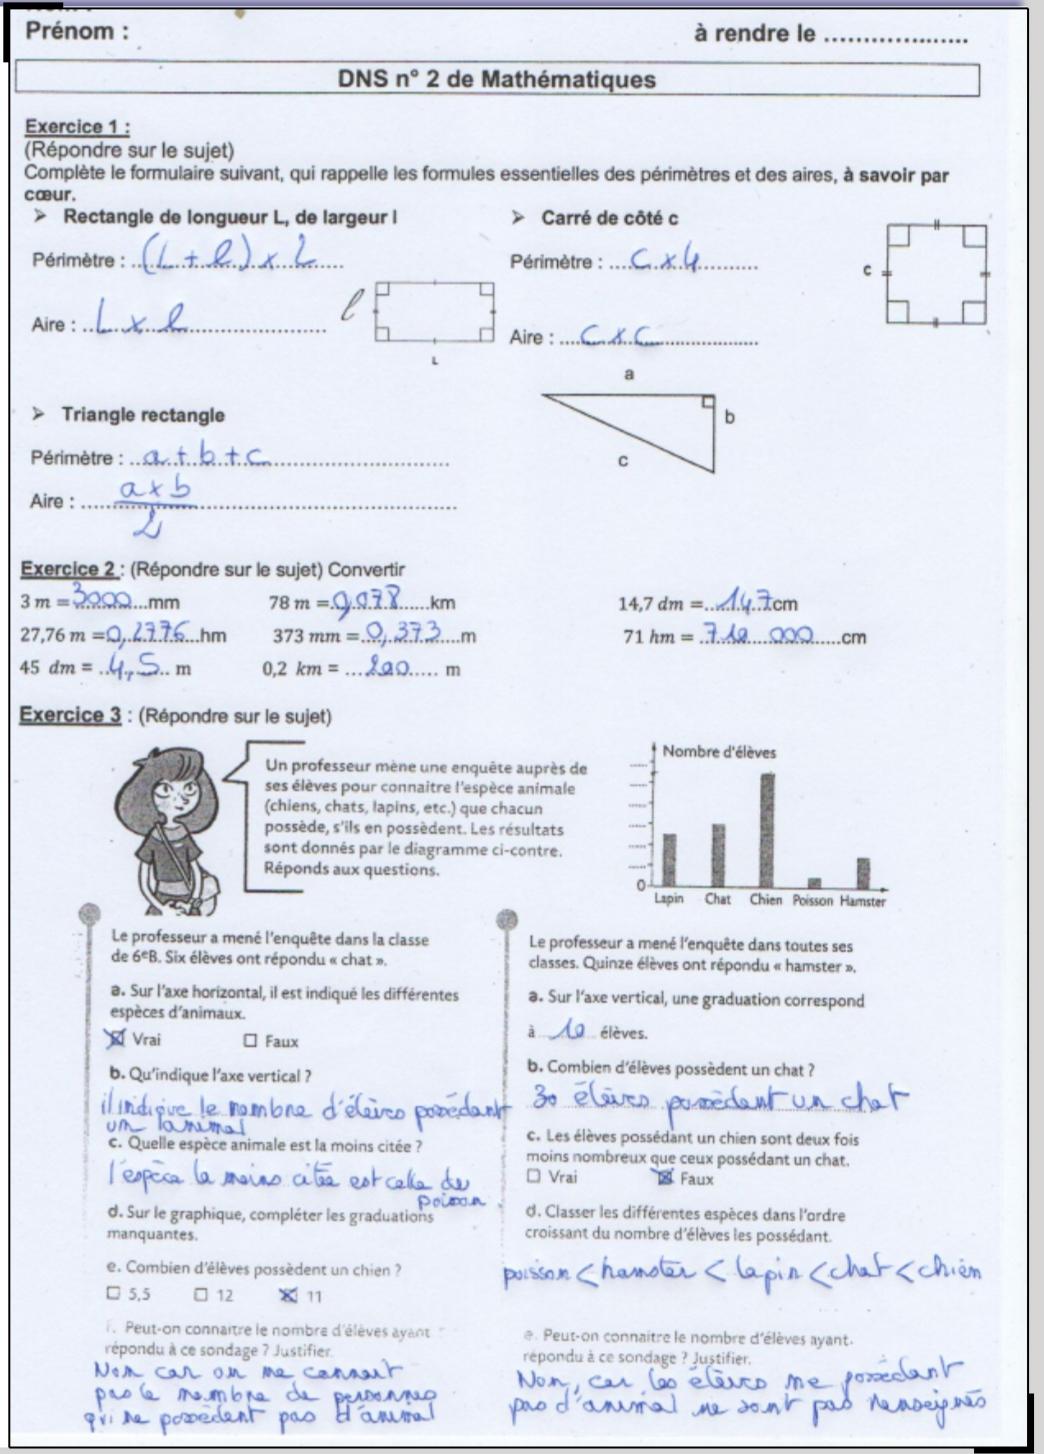 Prénom :
à rendre le ...................
DNS n° 2 de Mathématiques
Exercice 1 :
(Répondre sur le sujet)
Complète le formulaire suivant, qui rappelle les formules essentielles des périmètres et des aires, à savoir par
cœur.
➢ Rectangle de longueur L, de largeur l
Périmètre : (L + l) x 2
Aire : L x l
l
L
➢ Carré de côté c
Périmètre : c x 4
Aire : c x c
c
➢ Triangle rectangle
Périmètre : a + b + c
Aire : a x b
2
a
b
c
Exercice 2 : (Répondre sur le sujet) Convertir
3 m = 3000 mm 78 m = 0,078 km 14,7 dm = 147 cm
27,76 m = 0,2776 hm 373 mm = 0,373 m 71 hm = 710 000 cm
45 dm = 4,5 m 0,2 km = 200 m
Exercice 3 : (Répondre sur le sujet)
Un professeur mène une enquête auprès de
ses élèves pour connaitre l'espèce animale
(chiens, chats, lapins, etc.) que chacun
possède, s'ils en possèdent. Les résultats
sont donnés par le diagramme ci-contre.
Réponds aux questions.
Nombre d'élèves
0
Lapin Chat Chien Poisson Hamster
Le professeur a mené l'enquête dans la classe
de 6eB. Six élèves ont répondu « chat ».
a. Sur l'axe horizontal, il est indiqué les différentes
espèces d'animaux.
☒ Vrai ☐ Faux
b. Qu'indique l'axe vertical ?
il indique le nombre d'élèves possédant
un animal
c. Quelle espèce animale est la moins citée ?
l'espèce la moins citée est celle du
poisson.
d. Sur le graphique, compléter les graduations
manquantes.
e. Combien d'élèves possèdent un chien ?
☐ 5,5 ☐ 12 ☒ 11
f. Peut-on connaitre le nombre d'élèves ayant
répondu à ce sondage ? Justifier.
Non car on ne connait
pas le nombre de personnes
qui ne possèdent pas d'animal
Le professeur a mené l'enquête dans toutes ses
classes. Quinze élèves ont répondu « hamster ».
a. Sur l'axe vertical, une graduation correspond
à 10 élèves.
b. Combien d'élèves possèdent un chat ?
30 élèves possèdent un chat
c. Les élèves possédant un chien sont deux fois
moins nombreux que ceux possédant un chat.
☐ Vrai ☒ Faux
d. Classer les différentes espèces dans l'ordre
croissant du nombre d'élèves les possédant.
poisson < hamster < lapin < chat < chien
e. Peut-on connaitre le nombre d'élèves ayant
répondu à ce sondage ? Justifier.
Non, car les élèves ne possédant
pas d'animal ne sont pas renseignés